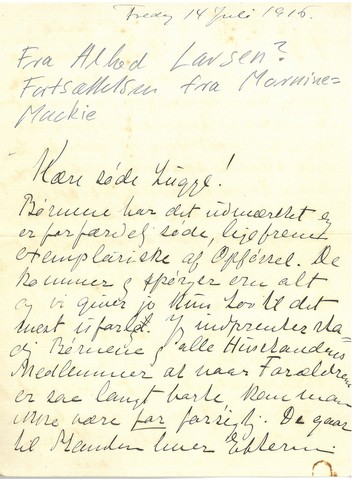 Fredag 14 Juli 1916.
Fra Alhed Larsen?
Fortsættelsen fra Mornine=
Muckie
Kære søde Lugge!
Børnene har det udmærket og
er forfærdelig søde, ligefrem
exemplariske af Opførsel. De
kommer og spørger om alt
og vi giver jo kun Lov til det
mest ufarlige. Vi indprenter sta-
dig Børnene og alle Husstandens
Medlemmer at naar Forældrene
er saa langt borte kan man
ikke være for forsigtig. De gaar
til Stranden hver Efterm: